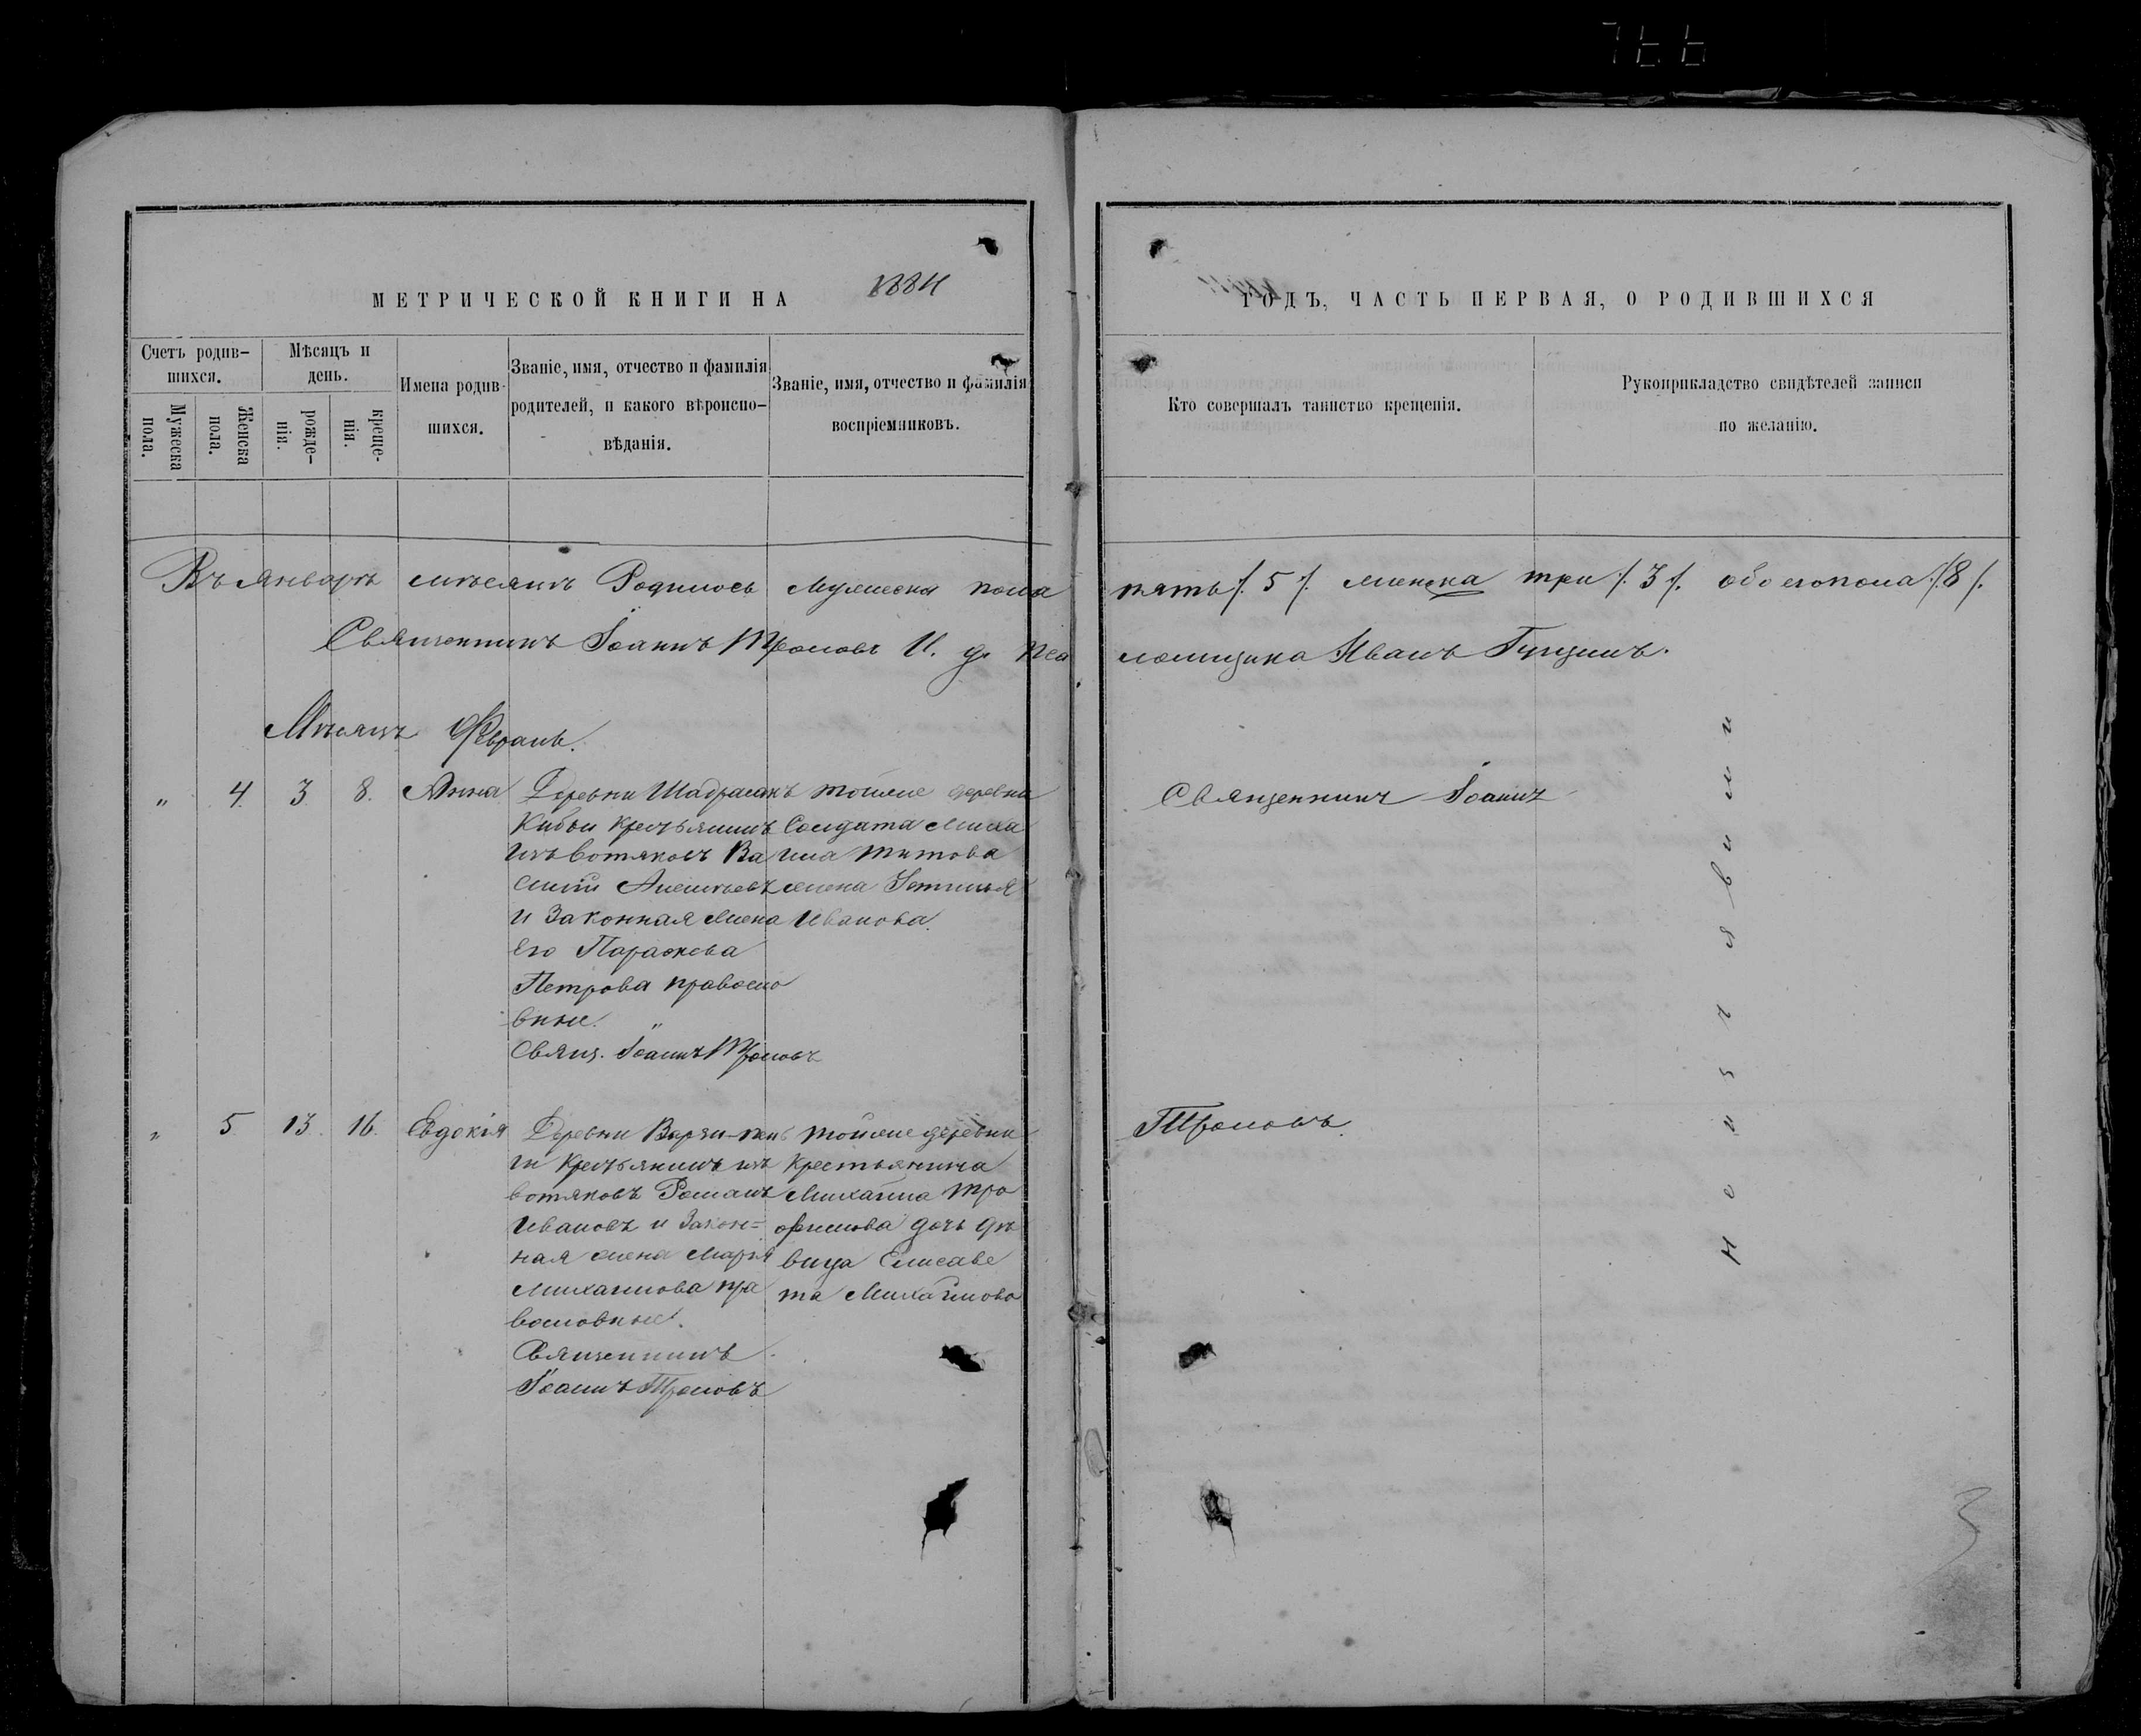 МЕТРИЧЕСКОЙ КНИГИ НА 1884
ГОДЪ, ЧАСТЬ ПЕРВАЯ, О РОДИВШИХСЯ
Счетъ родив-
шихся.
Мужеска
пола.
Женска
пола.
Мѣсяцъ и
день.
рожде-
нія.
креще-
нія.
Имена родив-
шихся.
Званіе, имя, отчество и фамилія
родителей, и какого вѣроиспо-
вѣданія.
Званіе, имя, отчество и фамилія
воспріемниковъ.
Кто совершалъ таинство крещенія.
Рукоприкладство свидѣтелей записи
по желанію.
Въ январѣ мѣсяцѣ Родилось мужеска пола пять /. 5 /. женска три /. 3 /. обоегопола /. 8 /.
Священникъ Іоаннъ И. д. пса ломщика Иванъ
Мѣсяцъ Февраль.
„ 4. 3 8. Анна
Деревни
крестьянинъ
изъ вотяковъ Ва
силій
и Законная жена
его Параскева
Петрова правосла
вные.
Свящ. Іоаннъ
тойже деревни
Солдата Миха
ила Титова
жена Устинья
Иванова.
Священникъ Іоаннъ
„ 5 13. 16. Евдокія
Деревни
ги крестьянинъ изъ
вотяковъ Романъ
Ивановъ и Закон=
ная жена Марія
Михаилова пра
вославные.
Священникъ
Іоаннъ
тойже деревни
крестьянина
Михаила Тро
фимова дочь дѣ
вица Елисаве
та Михайлова